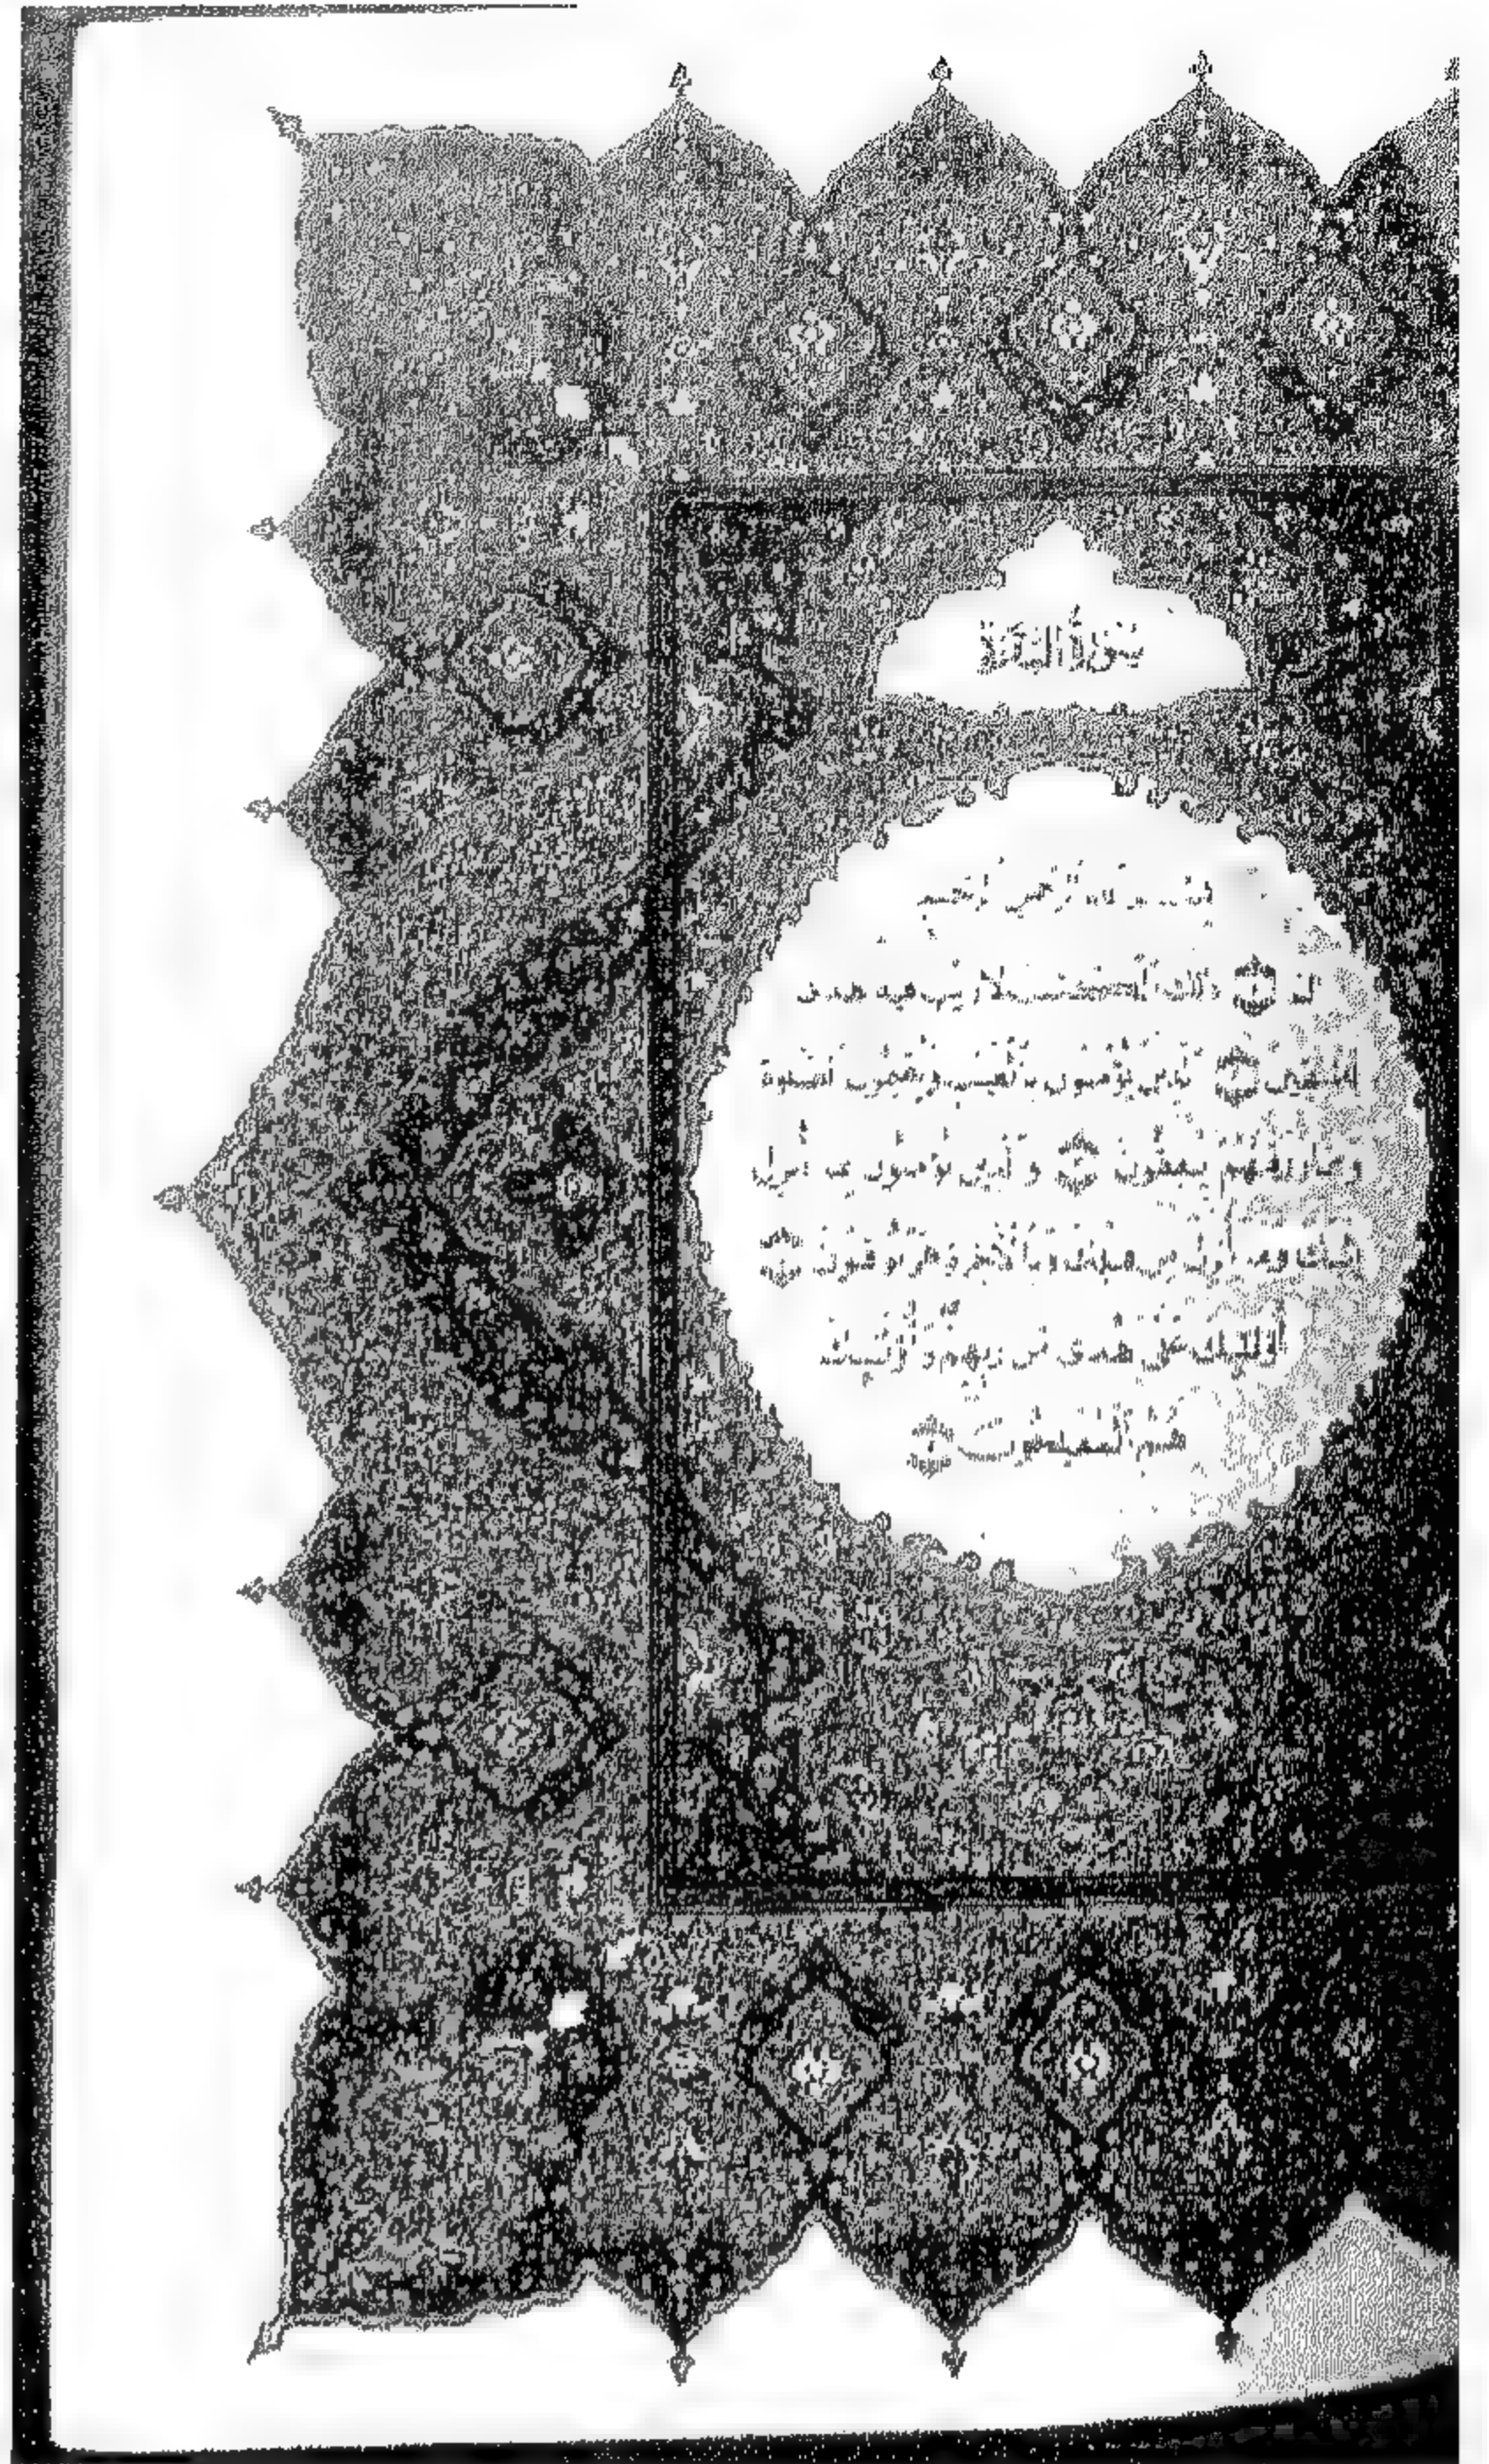 سورة البقرة
بسم الله الرحمن الرحيم
الم ذلك الكتاب لا ريب فيه هدى
للمتقين الذين يؤمنون بالغيب ويقيمون الصلوة
ومما رزقنهم ينفقون والذين يؤمنون بما أنزل
إليك وما أنزل من قبلك وبالآخرة هم يوقنون
أولئك على هدى من ربهم وأولئك
هم المفلحون